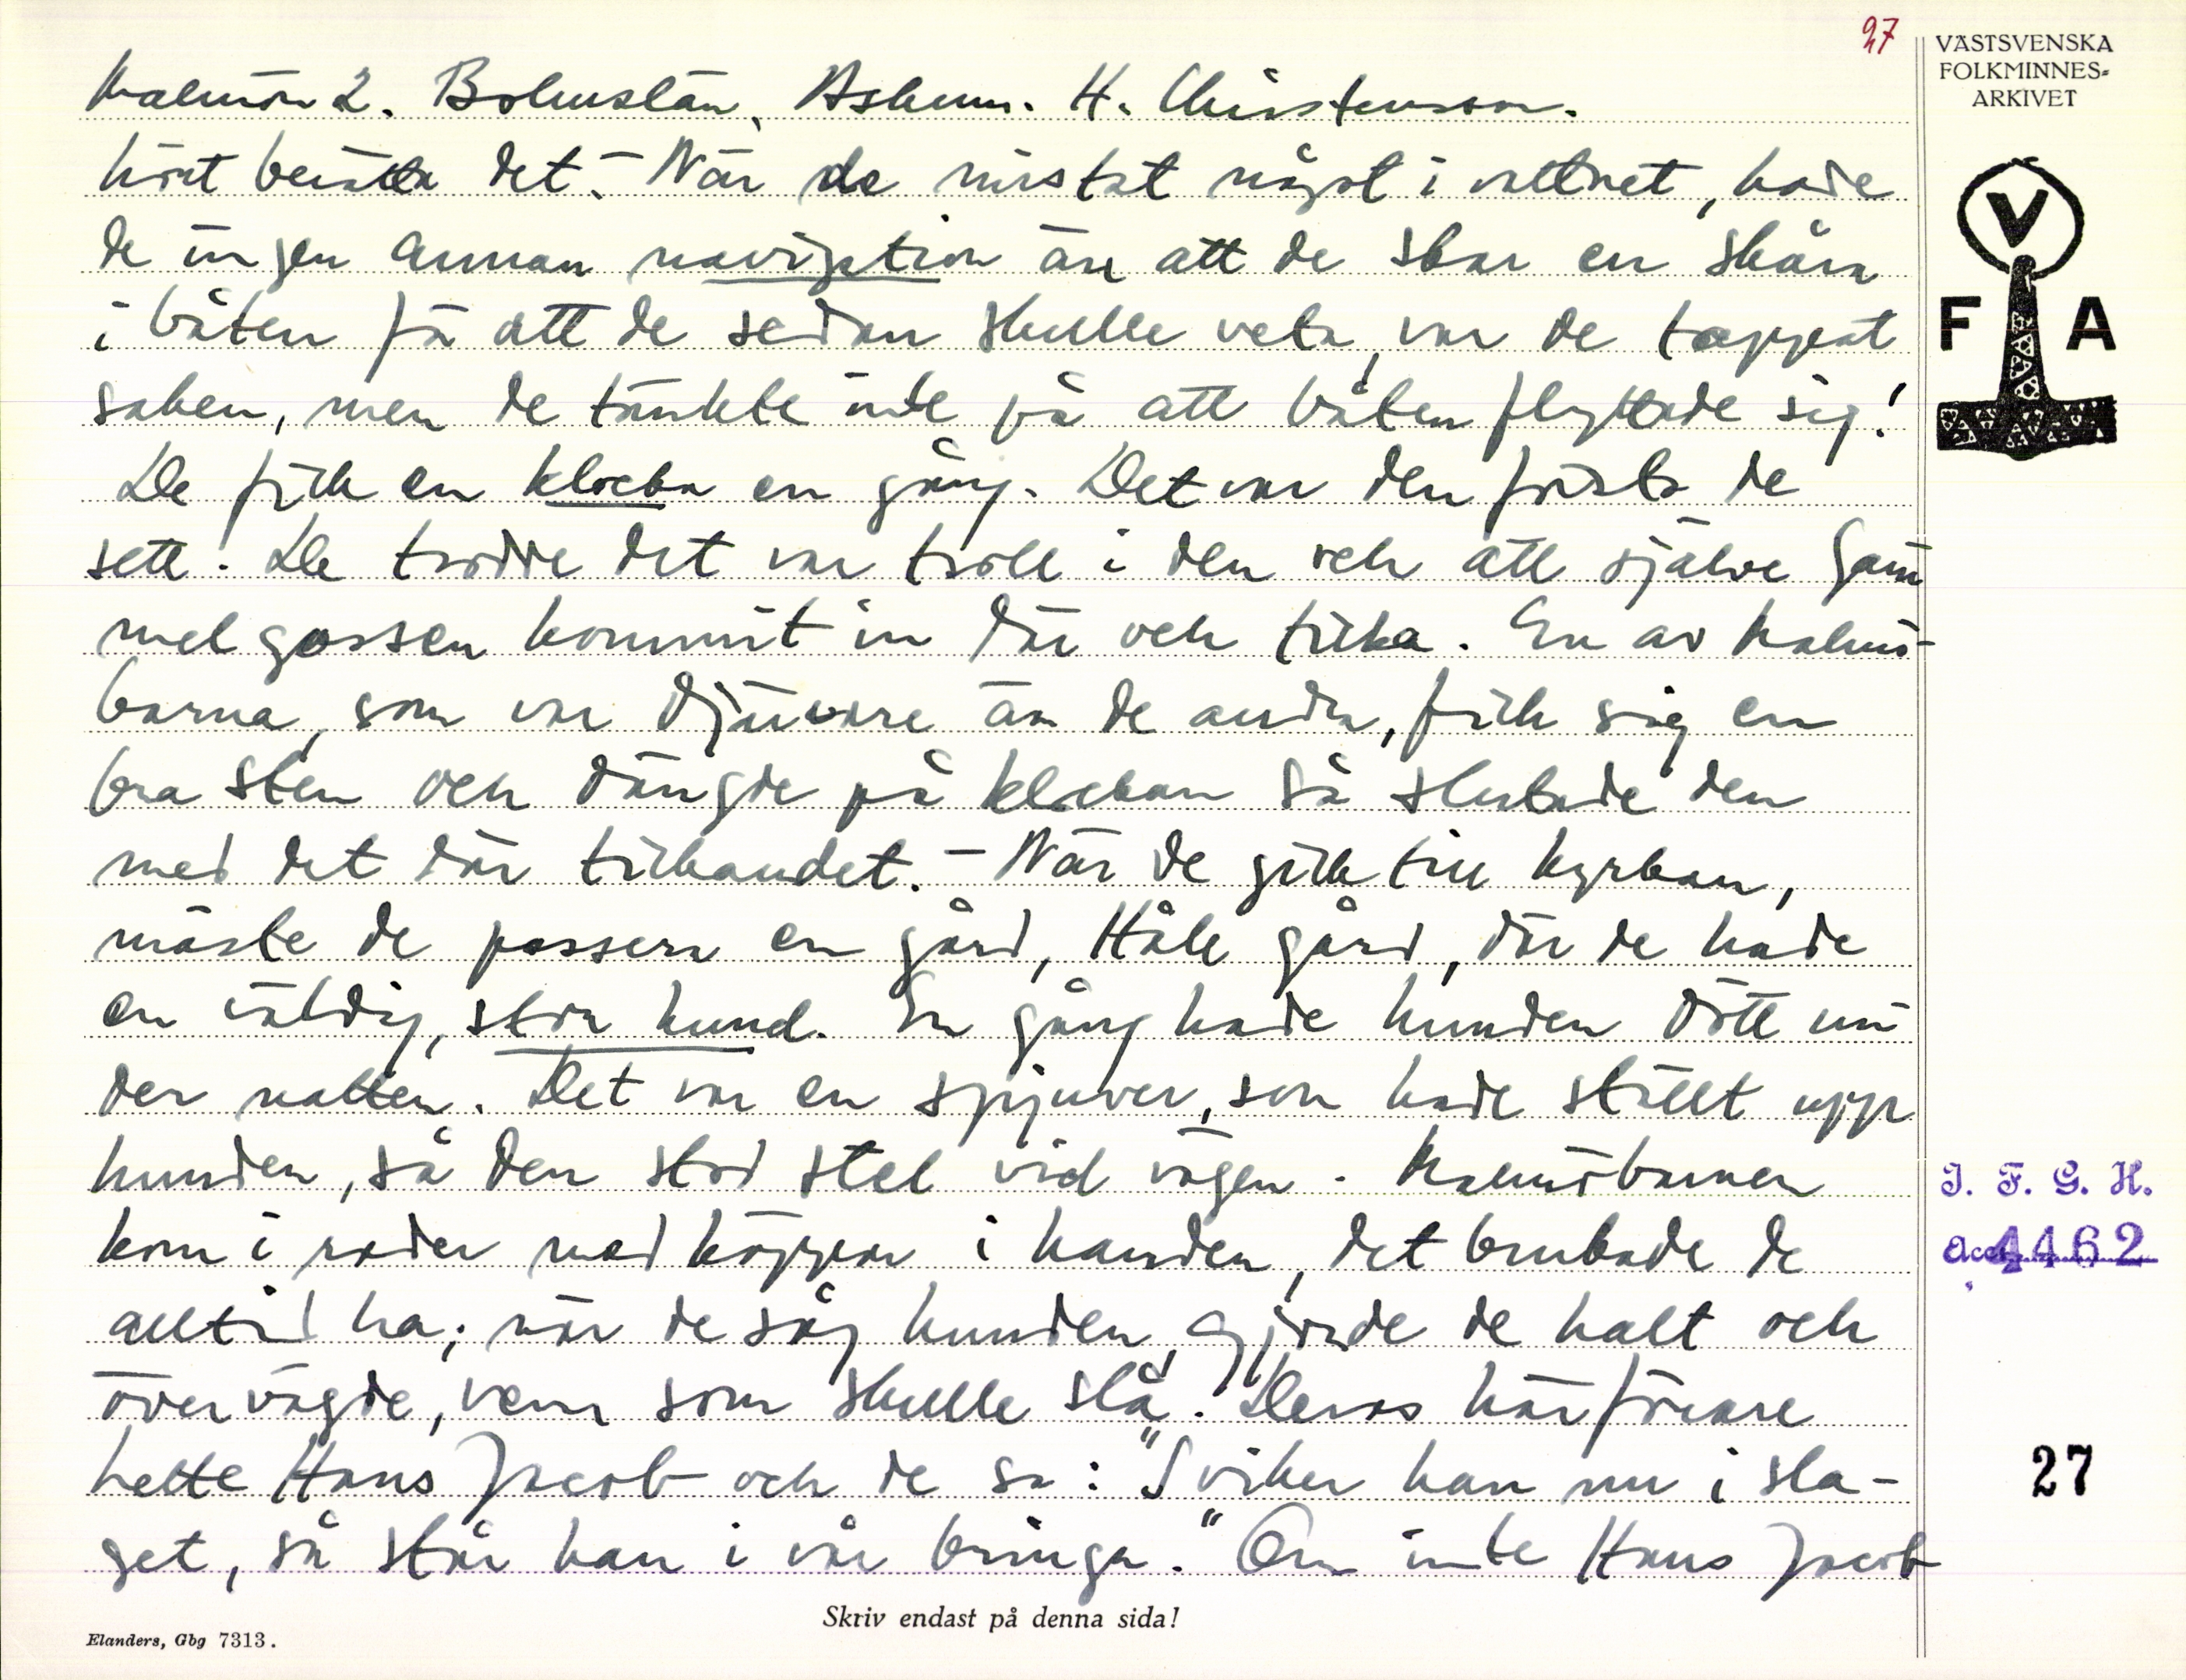 27
VÄSTSVENSKA
FOLKMINNES-
ARKIVET
V
F A
Malmön 2. Bohuslän, Askum. H. Christensson.
hört berätta det. – När de mistat något i vattnet, hade
de ingen annan navigation än att de skar en skåra
i båten för att de sedan skulle veta, var de tappat
saken, men de tänkte inte på att båten flyttade sig!
De fick en klocka en gång. Det var den första de
sett. De trodde det var troll i den och att själve Gam
melgossen kommit in där och ticka. En av Malmö-
barna, som var djärvare än de andra, fick sig en
bra sten och dängde på klockan så slutade den
med det där tickandet. – När de gick till kyrkan,
måste de passera en gård, Håle gård, där de hade
en väldig, stor hund. En gång hade hunden dött un
der natten. Det var en spjuver, som hade ställt upp
hunden, så den stod stel vid vägen. Malmöbarnen
kom i rader med käppar i handen, det brukade de
alltid ha; när de såg hunden, gjorde de halt och
övervägde, vem som skulle slå. Deras härförare
hette Hans Jacob och de sa: "Sviker han nu i sla-
get, så står han i vår bringa." Om inte Hans Jacob
I. F. G. H.
Acc. 4462
27
Skriv endast på denna sida!
Elanders, Gbg 7313.